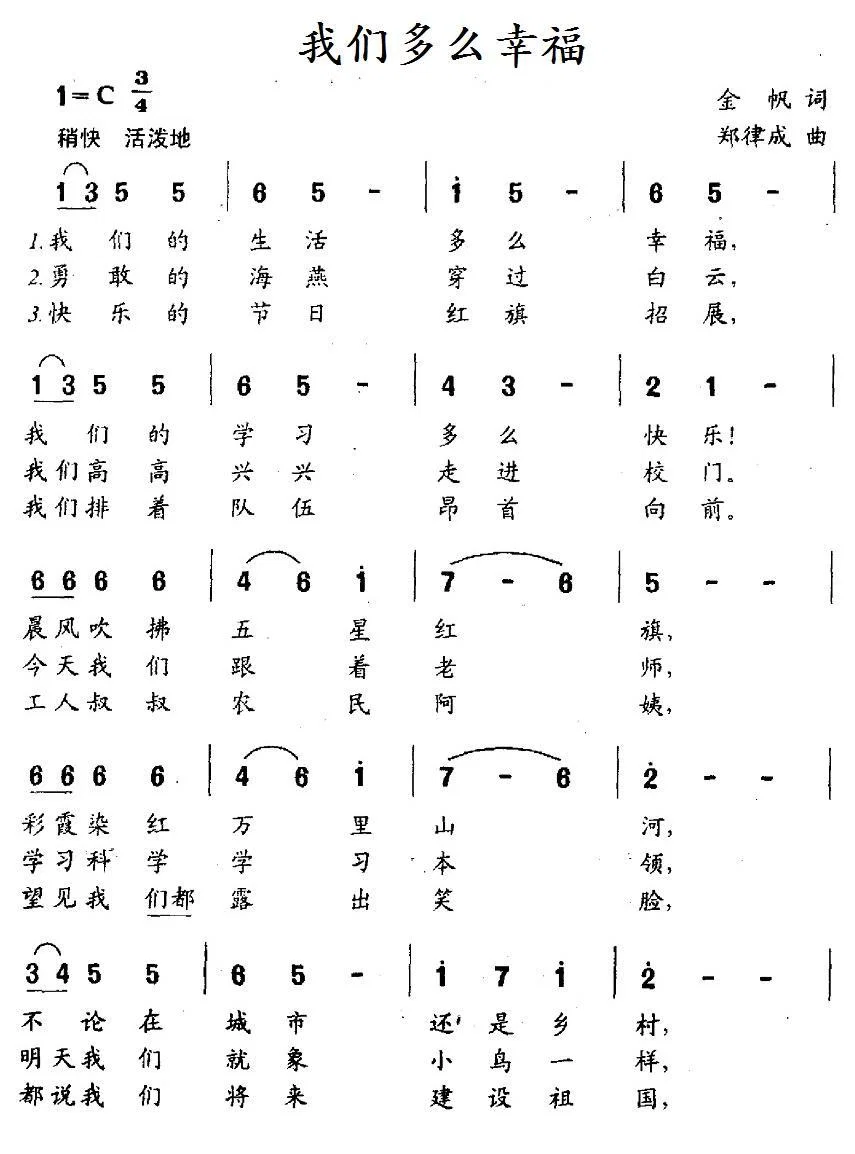 我们多么幸福
1=C 3/4
金 帆 词
稍快 活泼地
郑律成 曲
1 3 5 5 | 6 5 - | i 5 - | 6 5 - |
1.我 们 的 生 活 多 么 幸 福,
2.勇 敢 的 海 燕 穿 过 白 云,
3.快 乐 的 节 日 红 旗 招 展,
1 3 5 5 | 6 5 - | 4 3 - | 2 1 - |
我 们 的 学 习 多 么 快 乐!
我 们 高 高 兴 兴 走 进 校 门。
我 们 排 着 队 伍 昂 首 向 前。
6 6 6 6 | 4 6 i | 7 - 6 | 5 - - |
晨 风 吹 拂 五 星 红 旗,
今 天 我 们 跟 着 老 师,
工 人 叔 叔 农 民 阿 姨,
6 6 6 6 | 4 6 i | 7 - 6 | 2̇ - - |
彩 霞 染 红 万 里 山 河,
学 习 科 学 学 习 本 领,
望 见 我 们都 露 出 笑 脸,
3 4 5 5 | 6 5 - | i 7 i | 2̇ - - |
不 论 在 城 市 还 是 乡 村,
明 天 我 们 就 象 小 鸟 一 样,
都 说 我 们 将 来 建 设 祖 国,